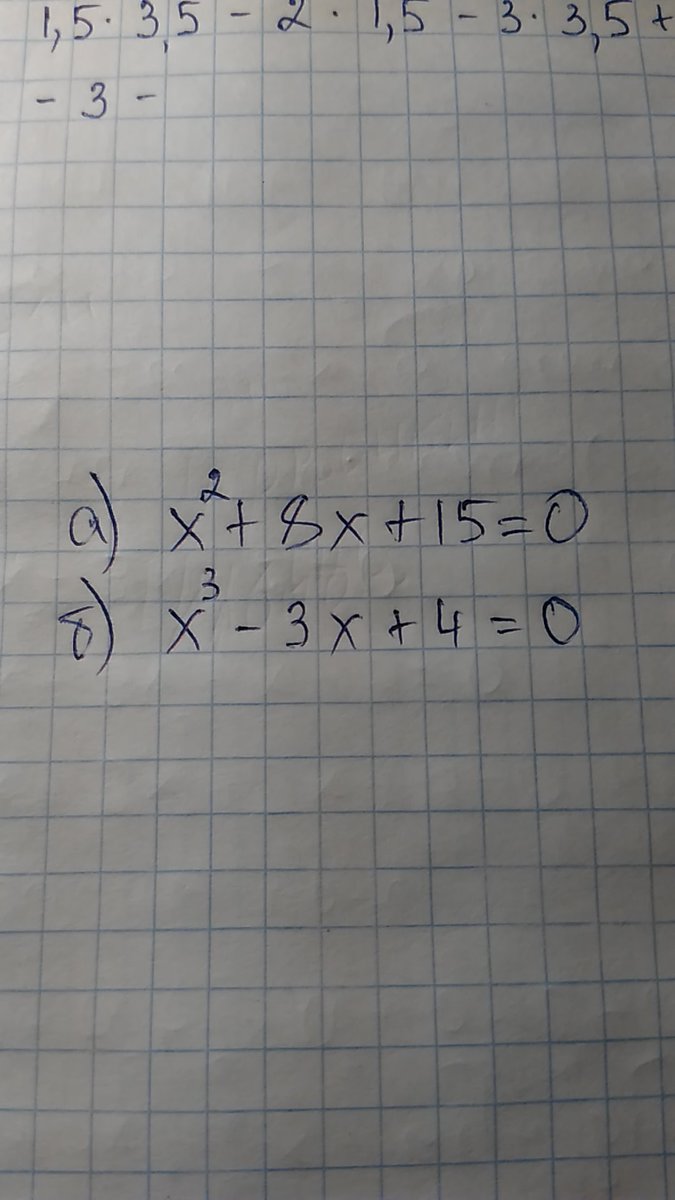 1,5 · 3,5 - 2 · 1,5 - 3 · 3,5 +
- 3 -
а) x² + 8x + 15 = 0
б) x³ - 3x + 4 = 0